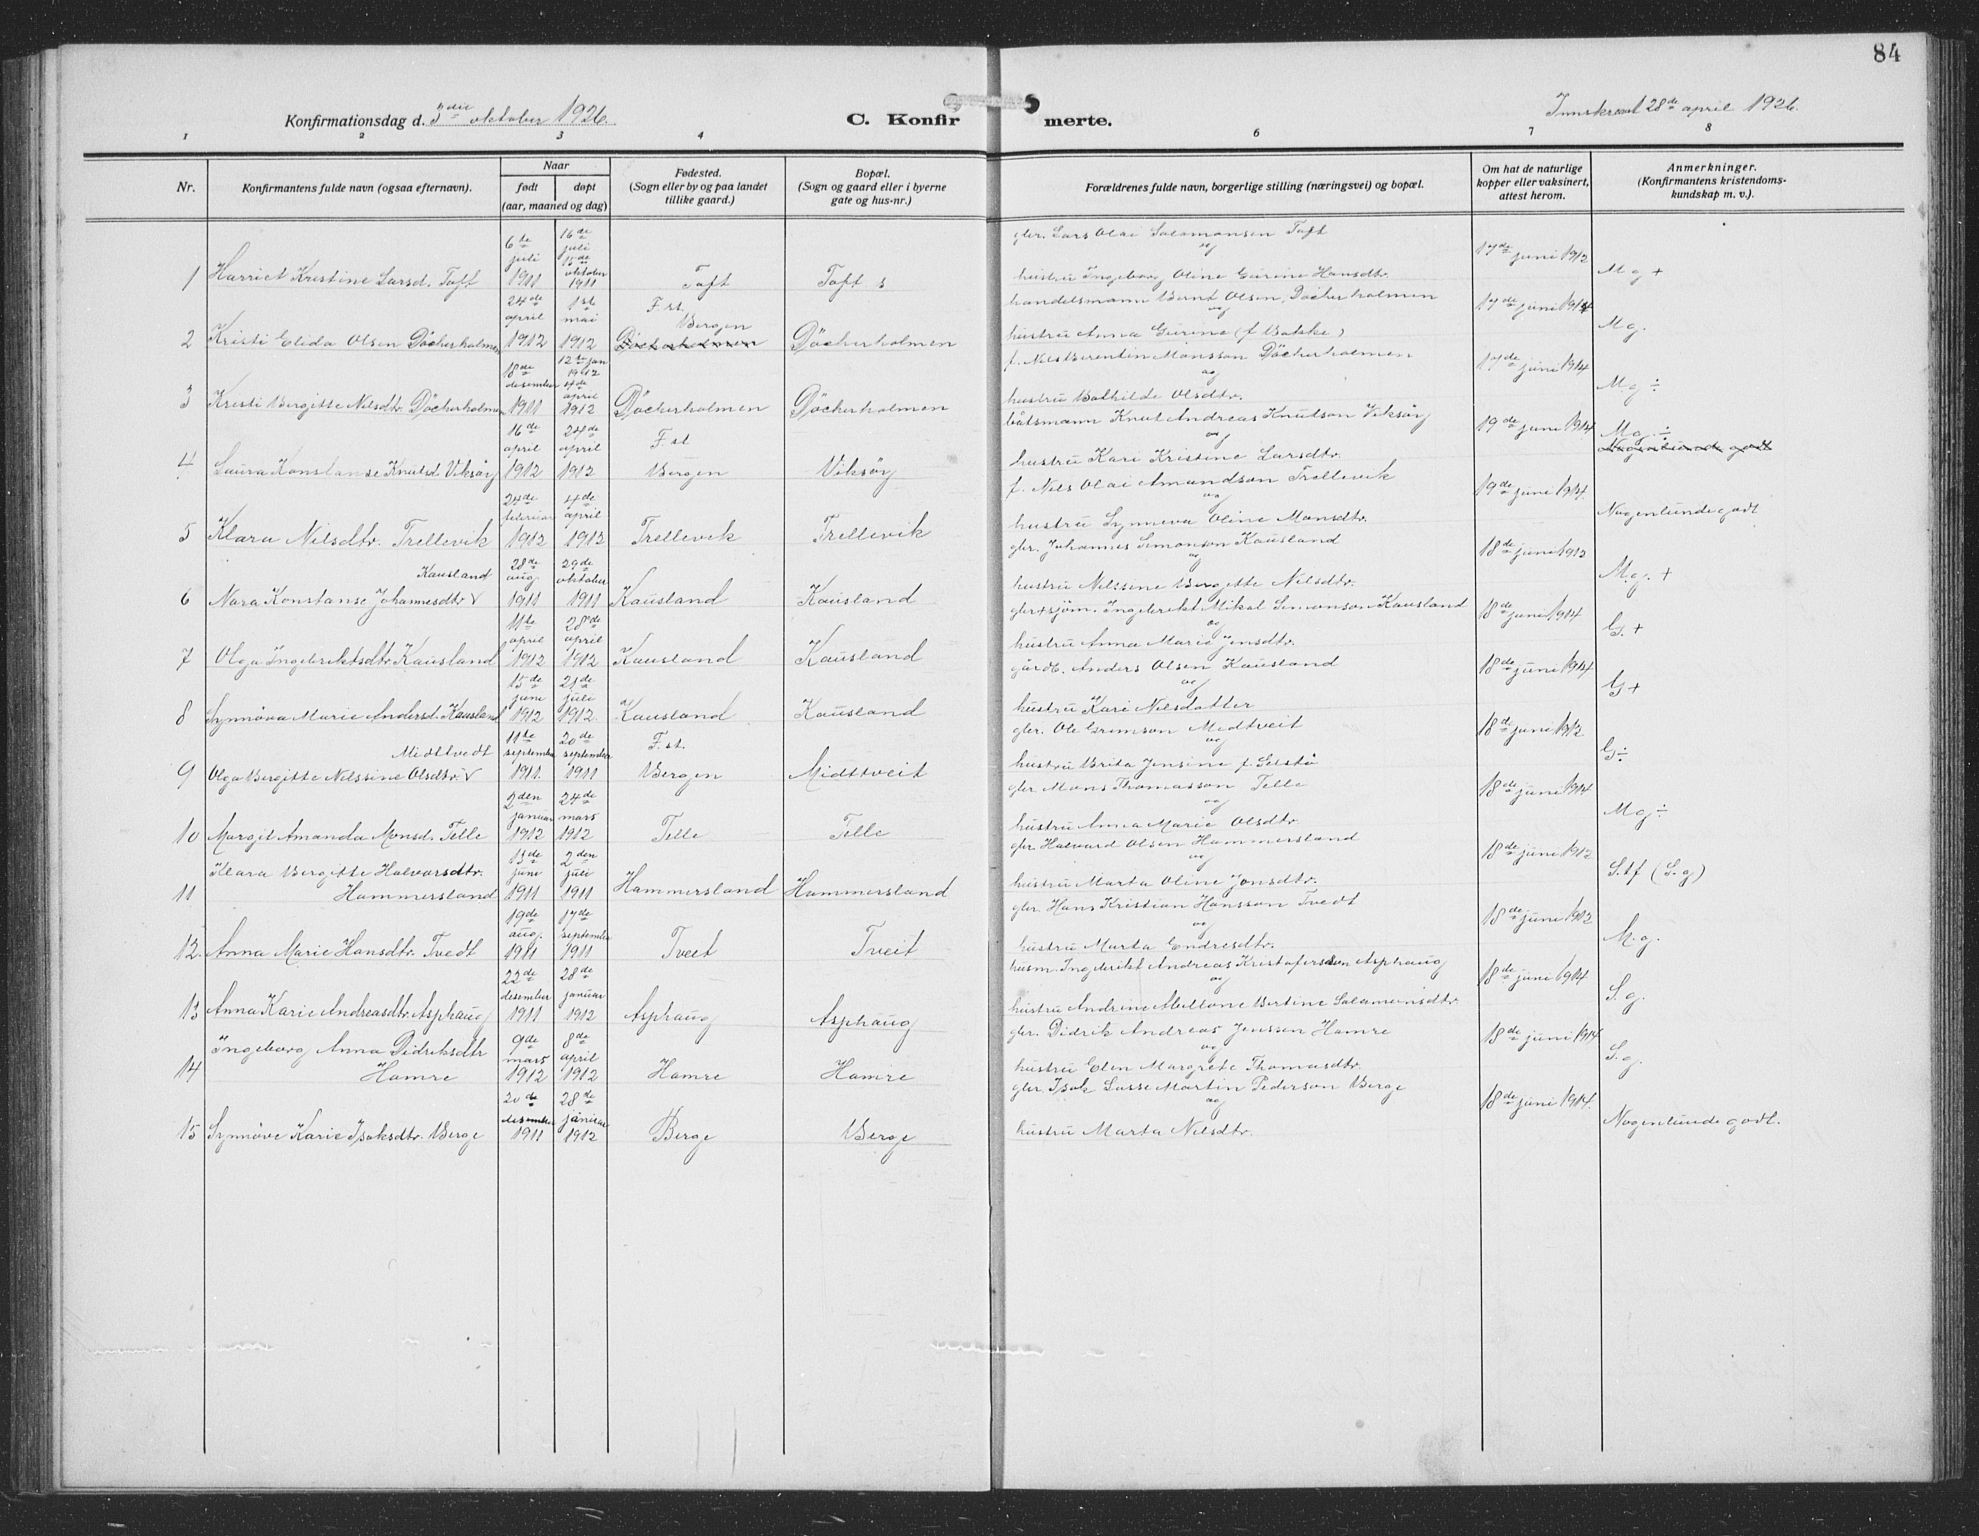 84
Konfirmationsdag d. 3die oktober 1926.
C. Konfirmerte.
Innskrevet 28de april 1926.
1 2 3 4 6 7 8
Nr.
Konfirmantens fulde navn (ogsaa efternavn).
Naar
født døpt
(aar, maaned og dag)
Fødested.
(Sogn eller by og paa landet
tillike gaard.)
Bopæl.
(Sogn og gaard eller i byerne
gate og hus-nr.)
Forældrenes fulde navn, borgerlige stilling (næringsvei) og bopæl.
Om hat de naturlige
kopper eller vaksinert,
attest herom.
Anmerkninger.
(Konfirmantens kristendoms-
kundskap m. v.).
gbr. Lars Olai Salamonsen Toft
6te juli 1911 16de juli 15de oktober 1911 og 17de juni 1912
1 Harriet Kristine Larsd. Toft Toft Toft hustru Ingeborg Oline Gurine Hansdtr. M g +
24de april 1912 1st mai 1912 F. st. Bergen handelsmann Bernt Olsen, Döckerholmen 17de juni 1914
2 Kristi Elida Olsen Döckerholmen Döckerholmen Döckerholmen og hustru Anna Gurine M g.
18de desember 1911 12te jan 1912 4de april 1912 f. Nils Berentin Monsson Döckerholmen 17de juni 1914
3 Kristi Bergitte Nilsdtr. Döckerholmen Döckerholmen Döckerholmen og hustru Bothilde Olsdtr. M g ÷
16de april 1912 24de april 1912 F. st. båtsmann Knut Andreas Knutson Viksöy 19de juni 1914
4 Laura Konstanse Knutsd. Viksöy Bergen Viksöy og hustru Kari Kristine Larsdtr. M g. ÷
24de februar 1912 4de april 1912 f. Nils Olai Amundson Trellevik 19de juni 1914.
5 Klara Nilsdtr. Trellevik Trellevik Trellevik og hustru Synneva Oline Monsdtr. Nogenlunde godt
Kausland 28de aug 1911 29de oktober 1911 gbr. Johannes Simonson Kausland 18de juni 1912
6 Nora Konstanse Johannesdtr. Kausland Kausland og hustru Nilssine Bergitte Nilsdtr. M.g. +
11te april 1912 28de april 1912 gbr + sjöm. Ingebrikt Mikal Simonson Kausland 18de juni 1914
7 Olga Ingebriktsdtr. Kausland Kausland Kausland og hustru Anna Marie Jensdtr. G. +
15de juni 1912 21de juli 1912. gårdb. Anders Olsen Kausland 18de juni 1914
8 Synnöva Marie Andersd. Kausland Kausland Kausland og hustru Kari Nilsdatter G +
Midttvedt 11te september 1911. 20de september 1911 F. st. gbr. Ole Grimson Midtveit 18de juni 1912
9 Olga Bergitte Nilssine Olsdtr. Bergen Midttveit og hustru Brita Jensine G ÷
2den januar 1912 24de mars 1912 gbr Mons Thomasson Telle 18de juni 1914
10 Margit Amanda Monsd. Telle Telle Telle og hustru Anna Marie Olsdtr. M g ÷
Klara Bergitte Halvorsdtr. 13de juni 1911 2den juli 1911 gbr Halvard Olsen Hammersland 18de juni 1912
11 Hammersland Hammersland Hammersland og hustru Marta Oline Jonsdtr. S.tf (S. g)
19de aug. 1911 17de september 1911 gbr. Hans Kristian Hansson Tvedt 18de juni 1912
12. Anna Marie Hansdtr. Tvedt Tveit Tveit og hustru Marta Endresdtr. M. g.
22de desember 1911 28de januar 1912 husm. Ingebrikt Andreas Kristoferson Asphaug 18de juni 1914
13 Anna Karie Andreasdtr. Asphaug Asphaug Asphaug og hustru Andrine Bertine Salamonsdtr. S. g.
Ingeborg Anna Didriksdtr 9de mars 1912 8de april 1912 gbr. Didrik Andreas Jensson Hamre 18de juni 1914
14 Hamre Hamre Hamre og hustru Elen Margrete Thomasdtr. S. g.
20de desember 1911 28de januar 1912 gbr Isak Lasse Martin Pederson Berge 18de juni 1914.
15 Synnöve Karie Isaksdtr. Berge Berge Berge og hustru Marta Nilsdtr. Nogenlunde godt.